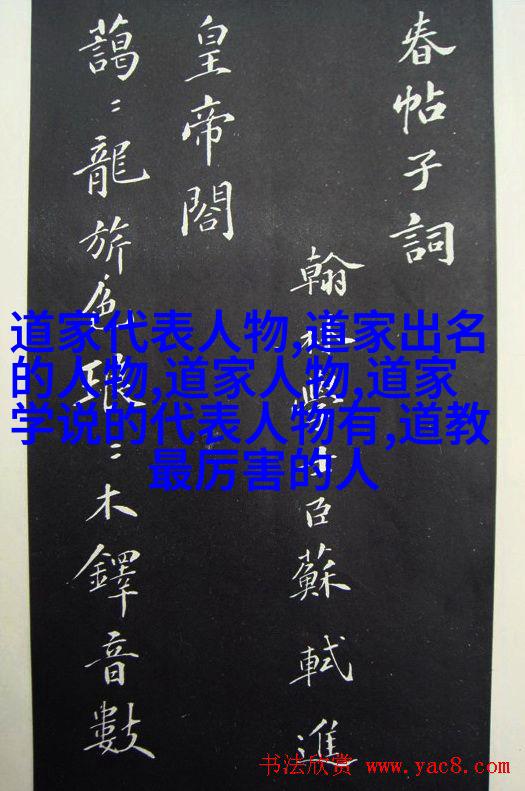 春帖子詞
翰林學士臣蘇軾進
皇帝閣
藹〻龍旂色琅〻木鐸音數
道家代表人物,道家出名
的人物,道家人物,道家
学说的代表人物有,道教
最厉害的人
书法欣赏 www.yac8.com